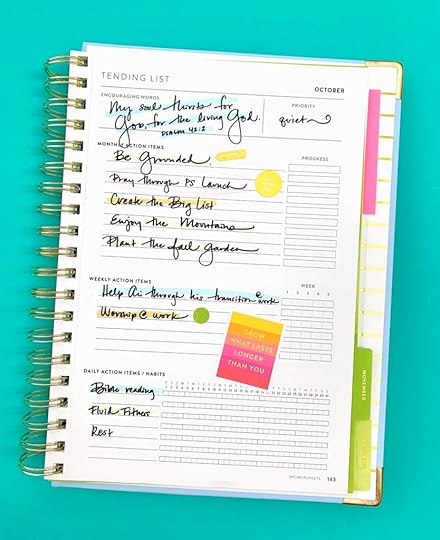 TENDING LIST
OCTOBER
ENCOURAGING WORDS
My soul thirsts for
God, for the living God.
PSALM 42:2
PRIORITY
quiet
MONTHLY ACTION ITEMS
PROGRESS
Be Grounded
Pray through PS Launch
Create the Big List
Enjoy the Mountains
Plant the fall Garden
WEEKLY ACTION ITEMS
WEEK
1 2 3 4 5
Help Ari through his transition @ work
Worship @ work
GROW
WHAT LASTS
LONGER
THAN YOU
DAILY ACTION ITEMS / HABITS
Bible reading
Fluid Fitness
Rest
NOVEMBER
#POWERSHEETS 143